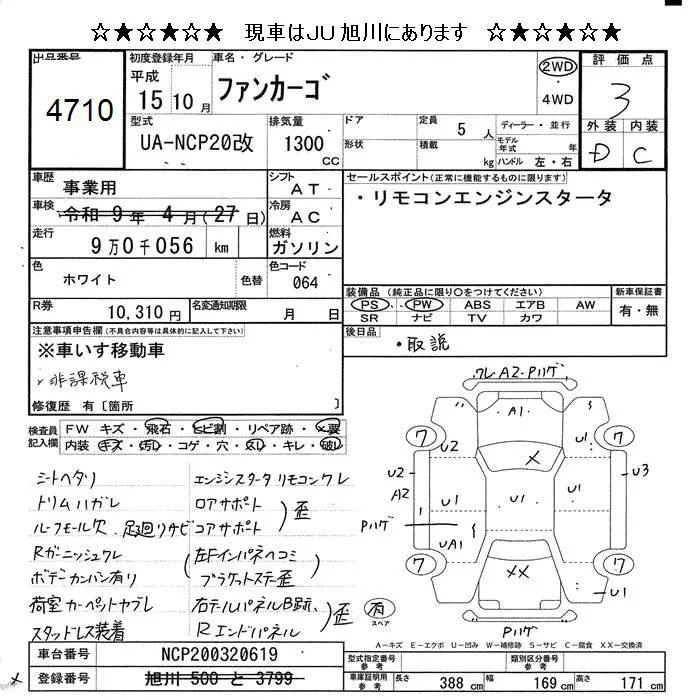 ☆★☆★☆★☆ 現車はJU旭川にあります ☆★☆★☆★☆
出品番号
4710
初度登録年月
平成
15 10月
車名・グレード
ファンカーゴ
2WD
4WD
評価点
3
外装 内装
D C
型式
UA-NCP20改
排気量
1300 CC
ドア
形状
定員 5人
積載 kg
ディーラー・並行
モデル年式 年
ハンドル 左・右
車歴 事業用
シフト AT
車検 令和 9年 4月(27日)
冷房 AC
走行 9万0千056 km
燃料 ガソリン
色 ホワイト 色替
色コード 064
R券 10,310円
名変通知期限 月 日
セールスポイント(正常に機能するものに限ります)
・リモコンエンジンスタータ
装備品(純正品に限り○をつけてください)
PS PW ABS エアB AW
SR ナビ TV カワ
新車保証書
有・無
後日品
・取説
注意事項申告欄(不具合内容等は具体的に記入して下さい)
※車いす移動車
・非課税車
修復歴 有〔箇所 〕
検査員記入欄
FW キズ・飛石・ヒビ割・リペア跡・×要
内装 キズ・汚レ・コゲ・穴・スレ・キレ・破レ
シートヘタリ
トリムハガレ
ルーフモール欠 足廻リサビ
Rガーニッシュワレ
ボデーカンバン有り
荷室カーペットヤブレ
スタッドレス装着
エンジンスタータリモコンワレ
ロアサポート
コアサポート 歪
左Fインパネヘコミ
ブラケットステー歪
右テールパネルB跡、
Rエンドパネル 歪
ワレA2-Pハゲ
A1
7 7
U2 U1
X
U2
A2
U1 U1 U1
U3
Pハゲ 1
UA1
XX
7 7
U1
Pハゲ
有
スペア
A-キズ E-エクボ U-凹み W-補修跡 S-サビ C-腐食 XX-交換済
車台番号 NCP200320619
× 登録番号 旭川 500 と 3799
型式指定番号 参考
類別区分番号 参考
車庫証明用参考
長さ 388 cm
幅 169 cm
高さ 171 cm